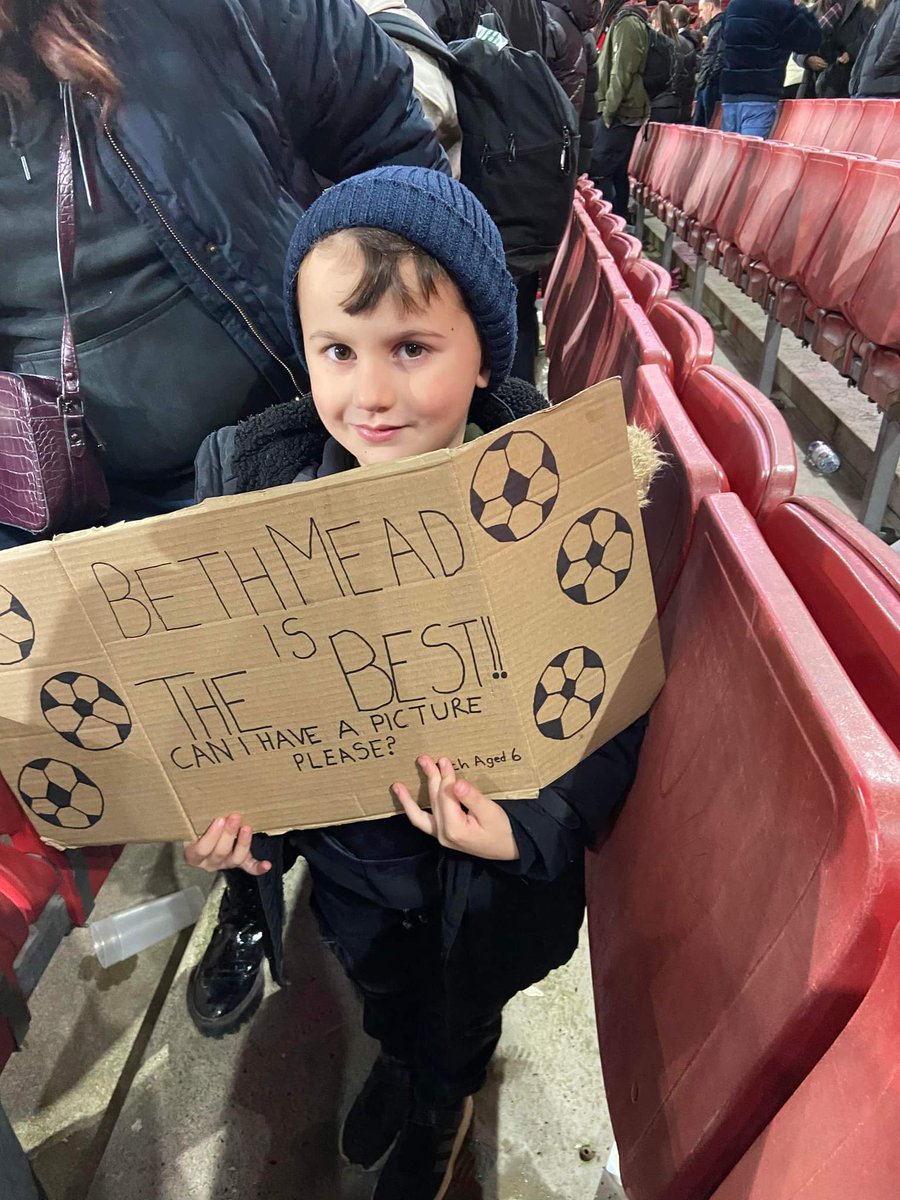 BETH MEAD
IS
THE BEST!!
CAN I HAVE A PICTURE
PLEASE?
Aged 6